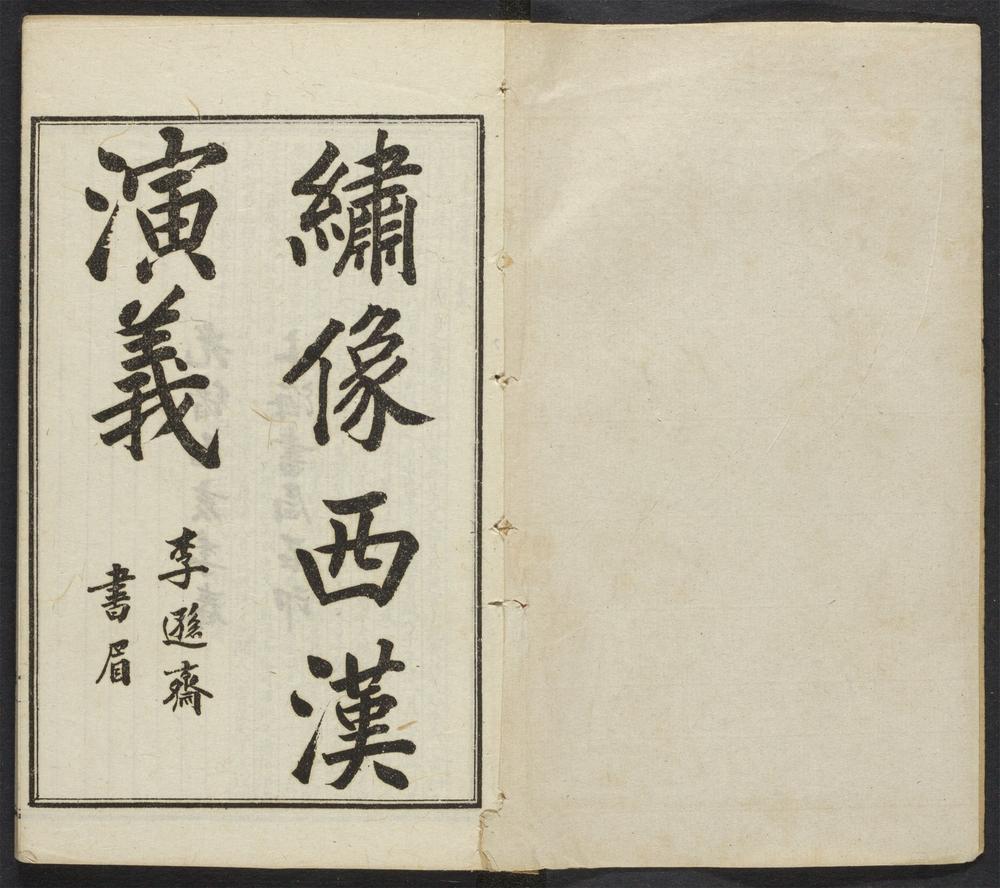 繡像西漢
演義
李遜齋
書眉